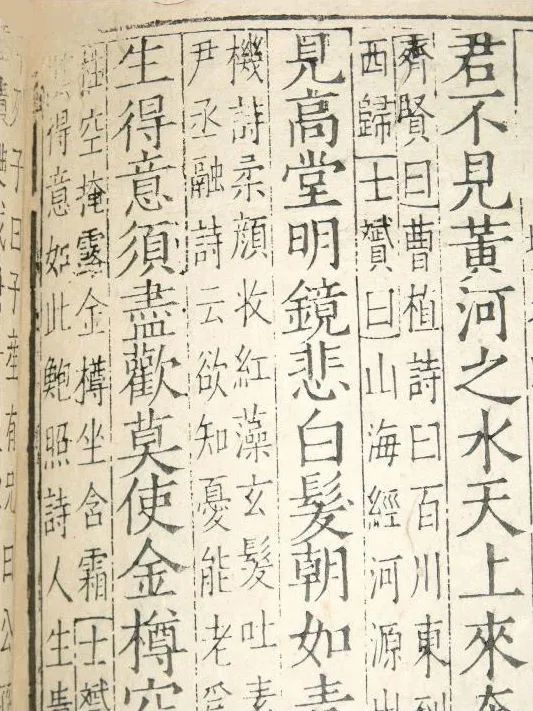 君不見黃河之水天上來奔
齊賢曰曹植詩曰百川東到
西歸士贇曰山海經河源出
見高堂明鏡悲白髮朝如青
機詩柔顏收紅藻玄髮吐素
尹丞融詩云欲知憂能老爲
生得意須盡歡莫使金樽空
空掩露金樽坐含霜士贇
得意如此鮑照詩人生貴
子曰子產有兄曰公